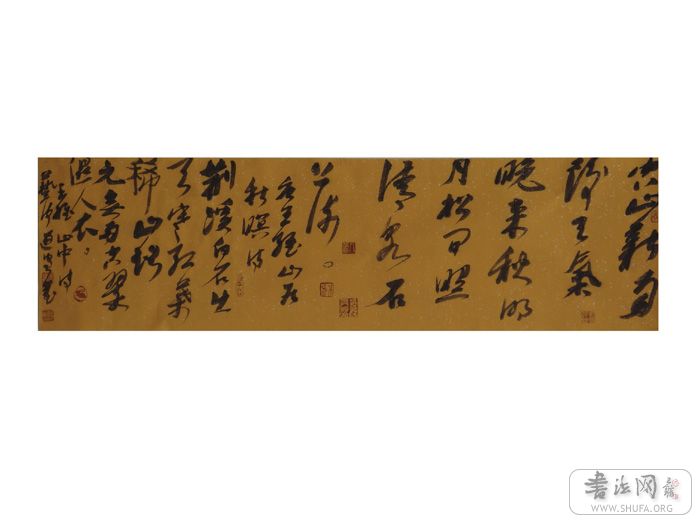 空山新雨
後天氣
晚来秋明
月松间照
清泉石
上流。
右王维山居
秋暝诗
荆溪白石出
天寒红葉
稀山路
元無雨空翠
湿人衣。
王维山中诗
书法网
WWW.SHUFA.ORG